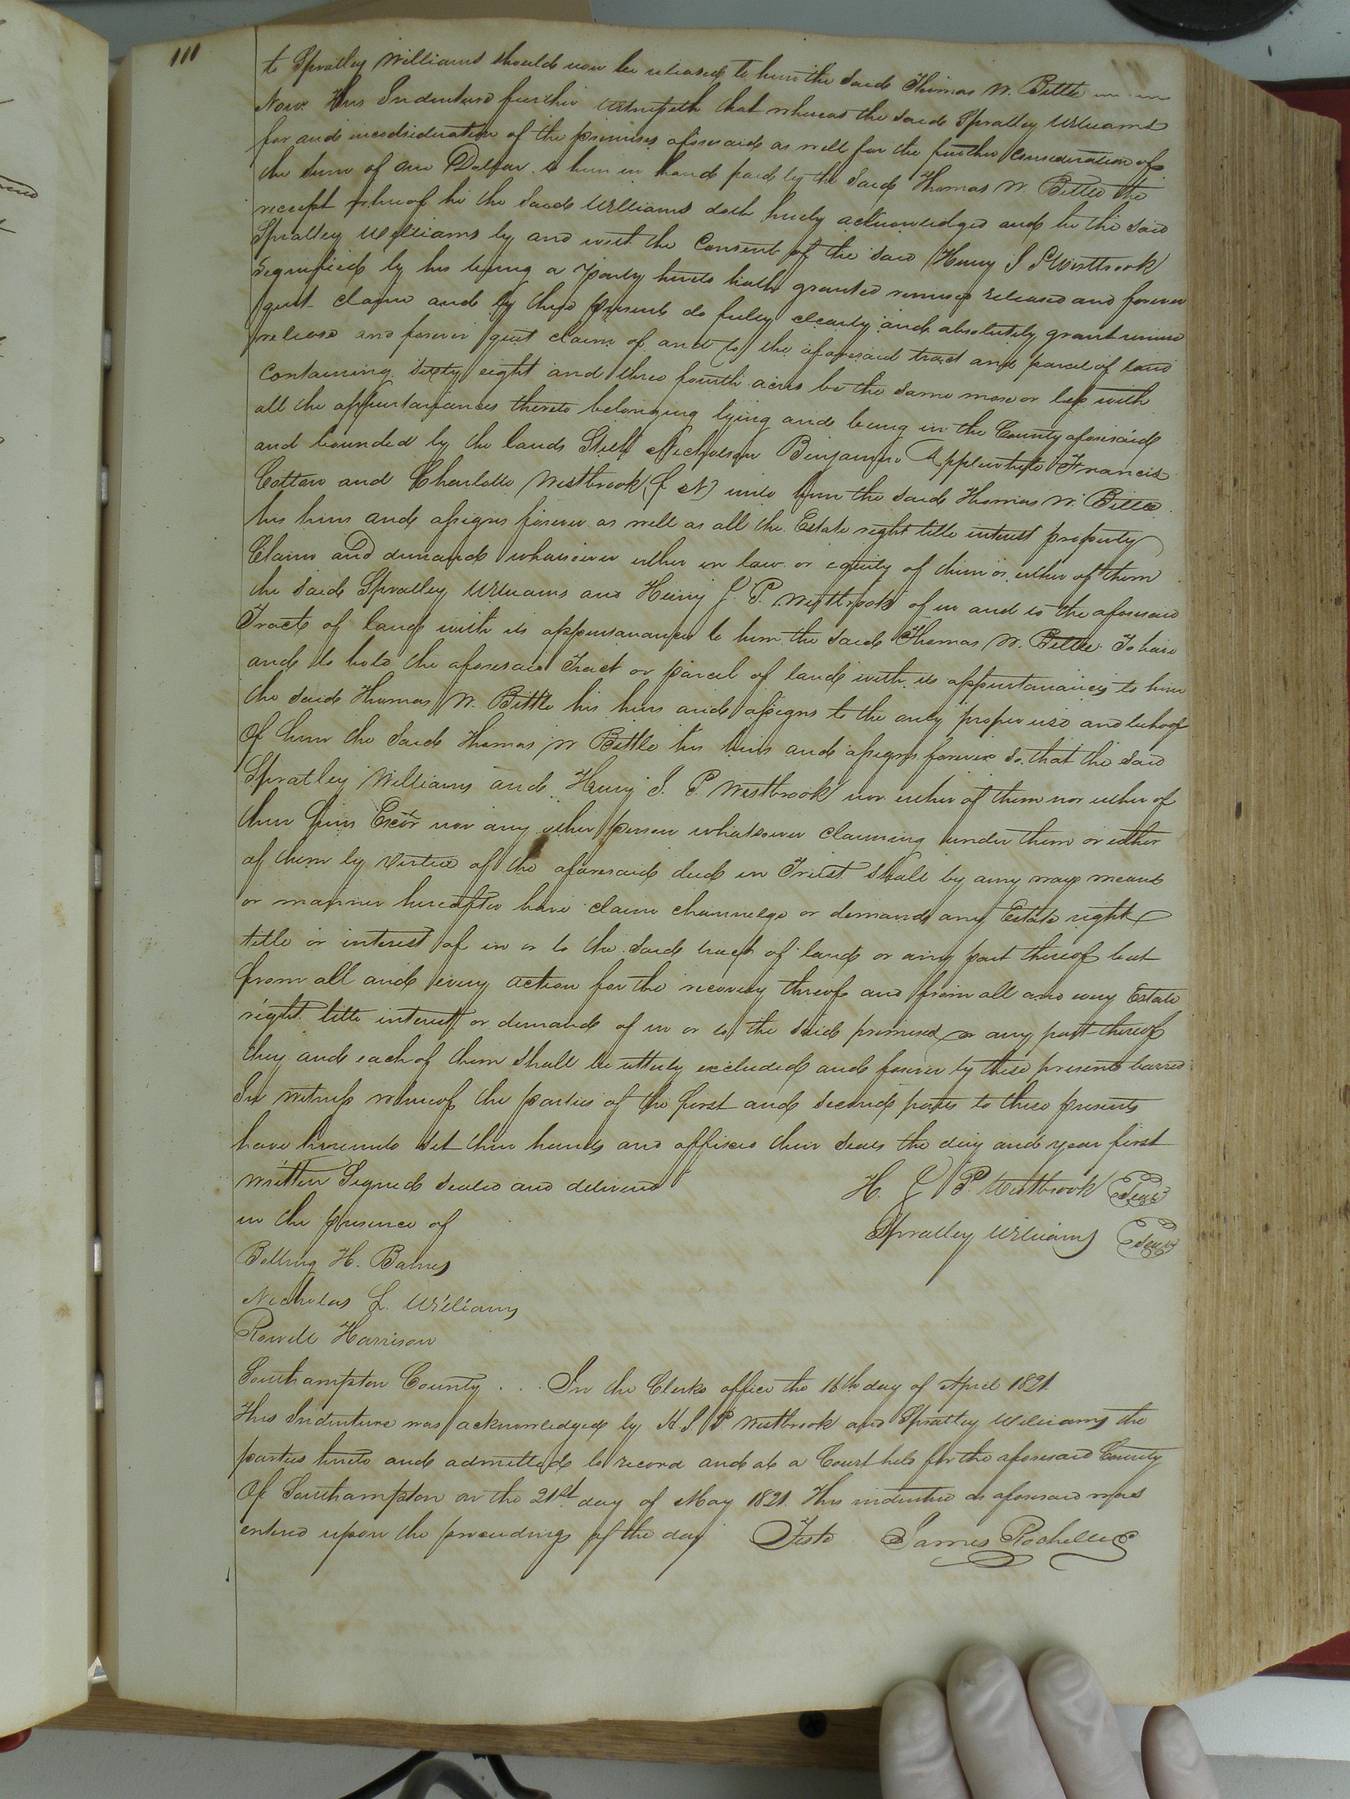 111
to Spratley Williams should now be released to him the said Thomas W. Bittle
Now this Indenture further witnesseth that whereas the said Spratley Williams
for and in consideration of the premises aforesaid as well for the further consideration of
the sum of one Dollar to him in hand paid by the said Thomas W. Bittle the
receipt whereof he the said Williams doth hereby acknowledged and he the said
Spratley Williams by and with the consent of the said Henry J P Westbrook
signified by his being a party hereto hath granted remised released and forever
quit claim and by these present do fully clearly and absolutely grant remise
release and forever quit claim of and to the aforesaid tract and parcel of land
containing sixty eight and three fourth acres be the same more or less with
all the appurtanances thereto belonging lying and being in the County aforesaid
and bounded by the lands Nicholson Benjamin Applewhite Francis
Cotton and Charlotte Westbrook unto him the said Thomas W. Bittle
his heirs and assigns forever as well as all the Estate right title interest property
Claim and demand whatsoever either in law or equity of them or either of them
the said Spratley Williams and Henry J. P. Westbrook of in and to the aforesaid
Tract of land with its appurtanances to him the said Thomas W. Bittle To have
and to hold the aforesaid Tract or parcel of land with its appurtanances to him
the said Thomas W. Bittle his heirs and assigns to the only proper use and behoof
Of him the said Thomas W Bittle his heirs and assigns forever so that the said
Spratley Williams and Henry J. P. Westbrook nor either of them nor either of
their heirs Excor nor any other person whatsoever claiming under them or either
of them by virtue of the aforesaid deed in Trust shall by any ways means
or manner hereafter have claim or demand any Estate right
title or interest of in or to the said tract of land or any part thereof but
from all and every action for the recovery thereof and from all and every Estate
right title interest or demand of in or to the said premises or any part thereof
they and each of them shall be utterly excluded and forever by these present barred
In witness whereof the parties of the first and second parts to these presents
have hereunto set their hands and affixed their seals the day and year first
written Signed sealed and delivered H. J P. Westbrook Seal
in the presence of Spratley Williams Seal
Bolling H. Barnes
Nicholas L. Williams
Rowell Harrison
Southampton County . . . In the Clerks office the 16th day of April 1821
This Indenture was acknowledged by H J P Westbrook and Spratley Williams the
parties hereto and admitted to record and at a Court held for the aforesaid County
Of Southampton on the 21st day of May 1821. This indenture as aforesaid was
entered upon the proceedings of the day Teste James Rochelle